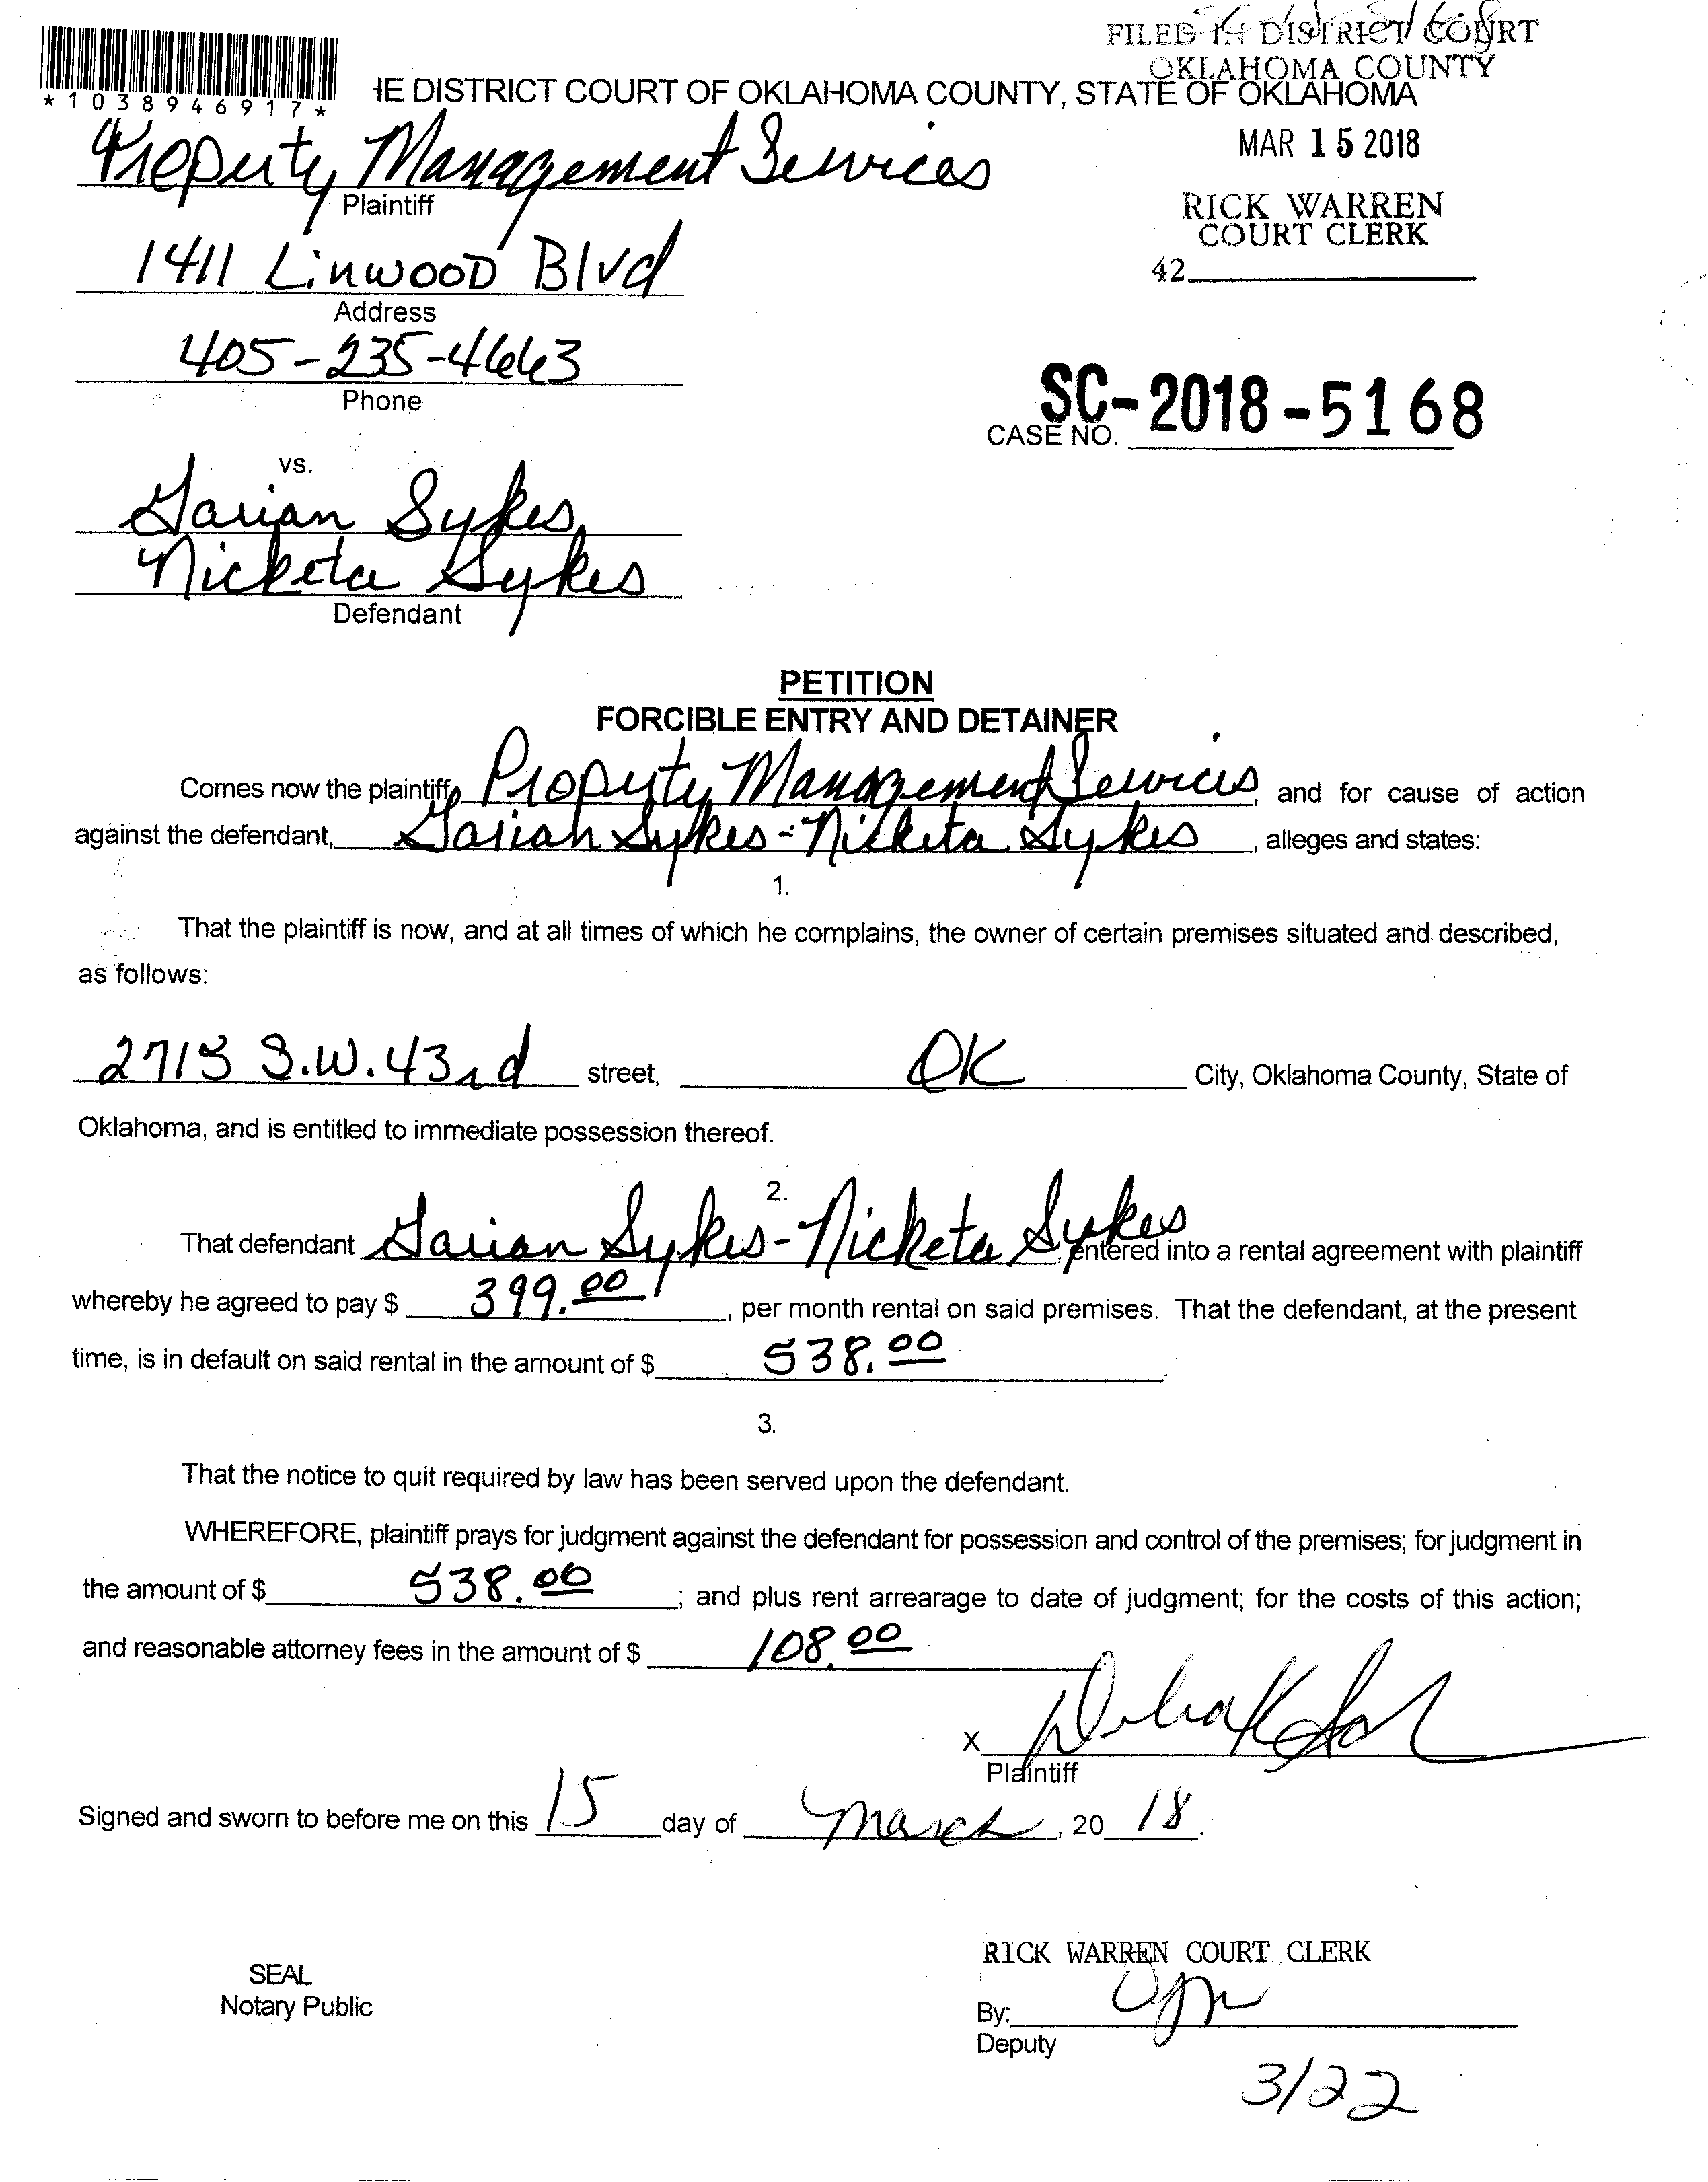 FILED IN DISTRICT COURT
OKLAHOMA COUNTY
*1038946917*
HE DISTRICT COURT OF OKLAHOMA COUNTY, STATE OF OKLAHOMA
MAR 15 2018
Property Management Services
Plaintiff
RICK WARREN
COURT CLERK
1411 Linwood Blvd
42
Address
405-235-4663
Phone
SC-2018-5168
CASE NO.
vs.
Sykes
Nicketa Sykes
Defendant
PETITION
FORCIBLE ENTRY AND DETAINER
Comes now the plaintiff, Property Management Services, and for cause of action
against the defendant, Sykes - Nicketa Sykes, alleges and states:
1.
That the plaintiff is now, and at all times of which he complains, the owner of certain premises situated and described,
as follows:
S.W. 43rd street, OK City, Oklahoma County, State of
Oklahoma, and is entitled to immediate possession thereof.
2.
That defendant Sykes - Nicketa Sykes, entered into a rental agreement with plaintiff
whereby he agreed to pay $ 399.00, per month rental on said premises. That the defendant, at the present
time, is in default on said rental in the amount of $ 538.00.
3.
That the notice to quit required by law has been served upon the defendant.
WHEREFORE, plaintiff prays for judgment against the defendant for possession and control of the premises; for judgment in
the amount of $ 538.00; and plus rent arrearage to date of judgment; for the costs of this action;
and reasonable attorney fees in the amount of $ 108.00
X
Plaintiff
Signed and sworn to before me on this 15 day of March, 20 18.
RICK WARREN COURT CLERK
SEAL
Notary Public
By:
Deputy
3/22